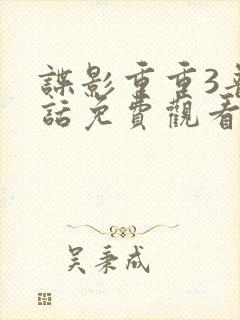 諜影重重3普
話免費觀看
吳秉成